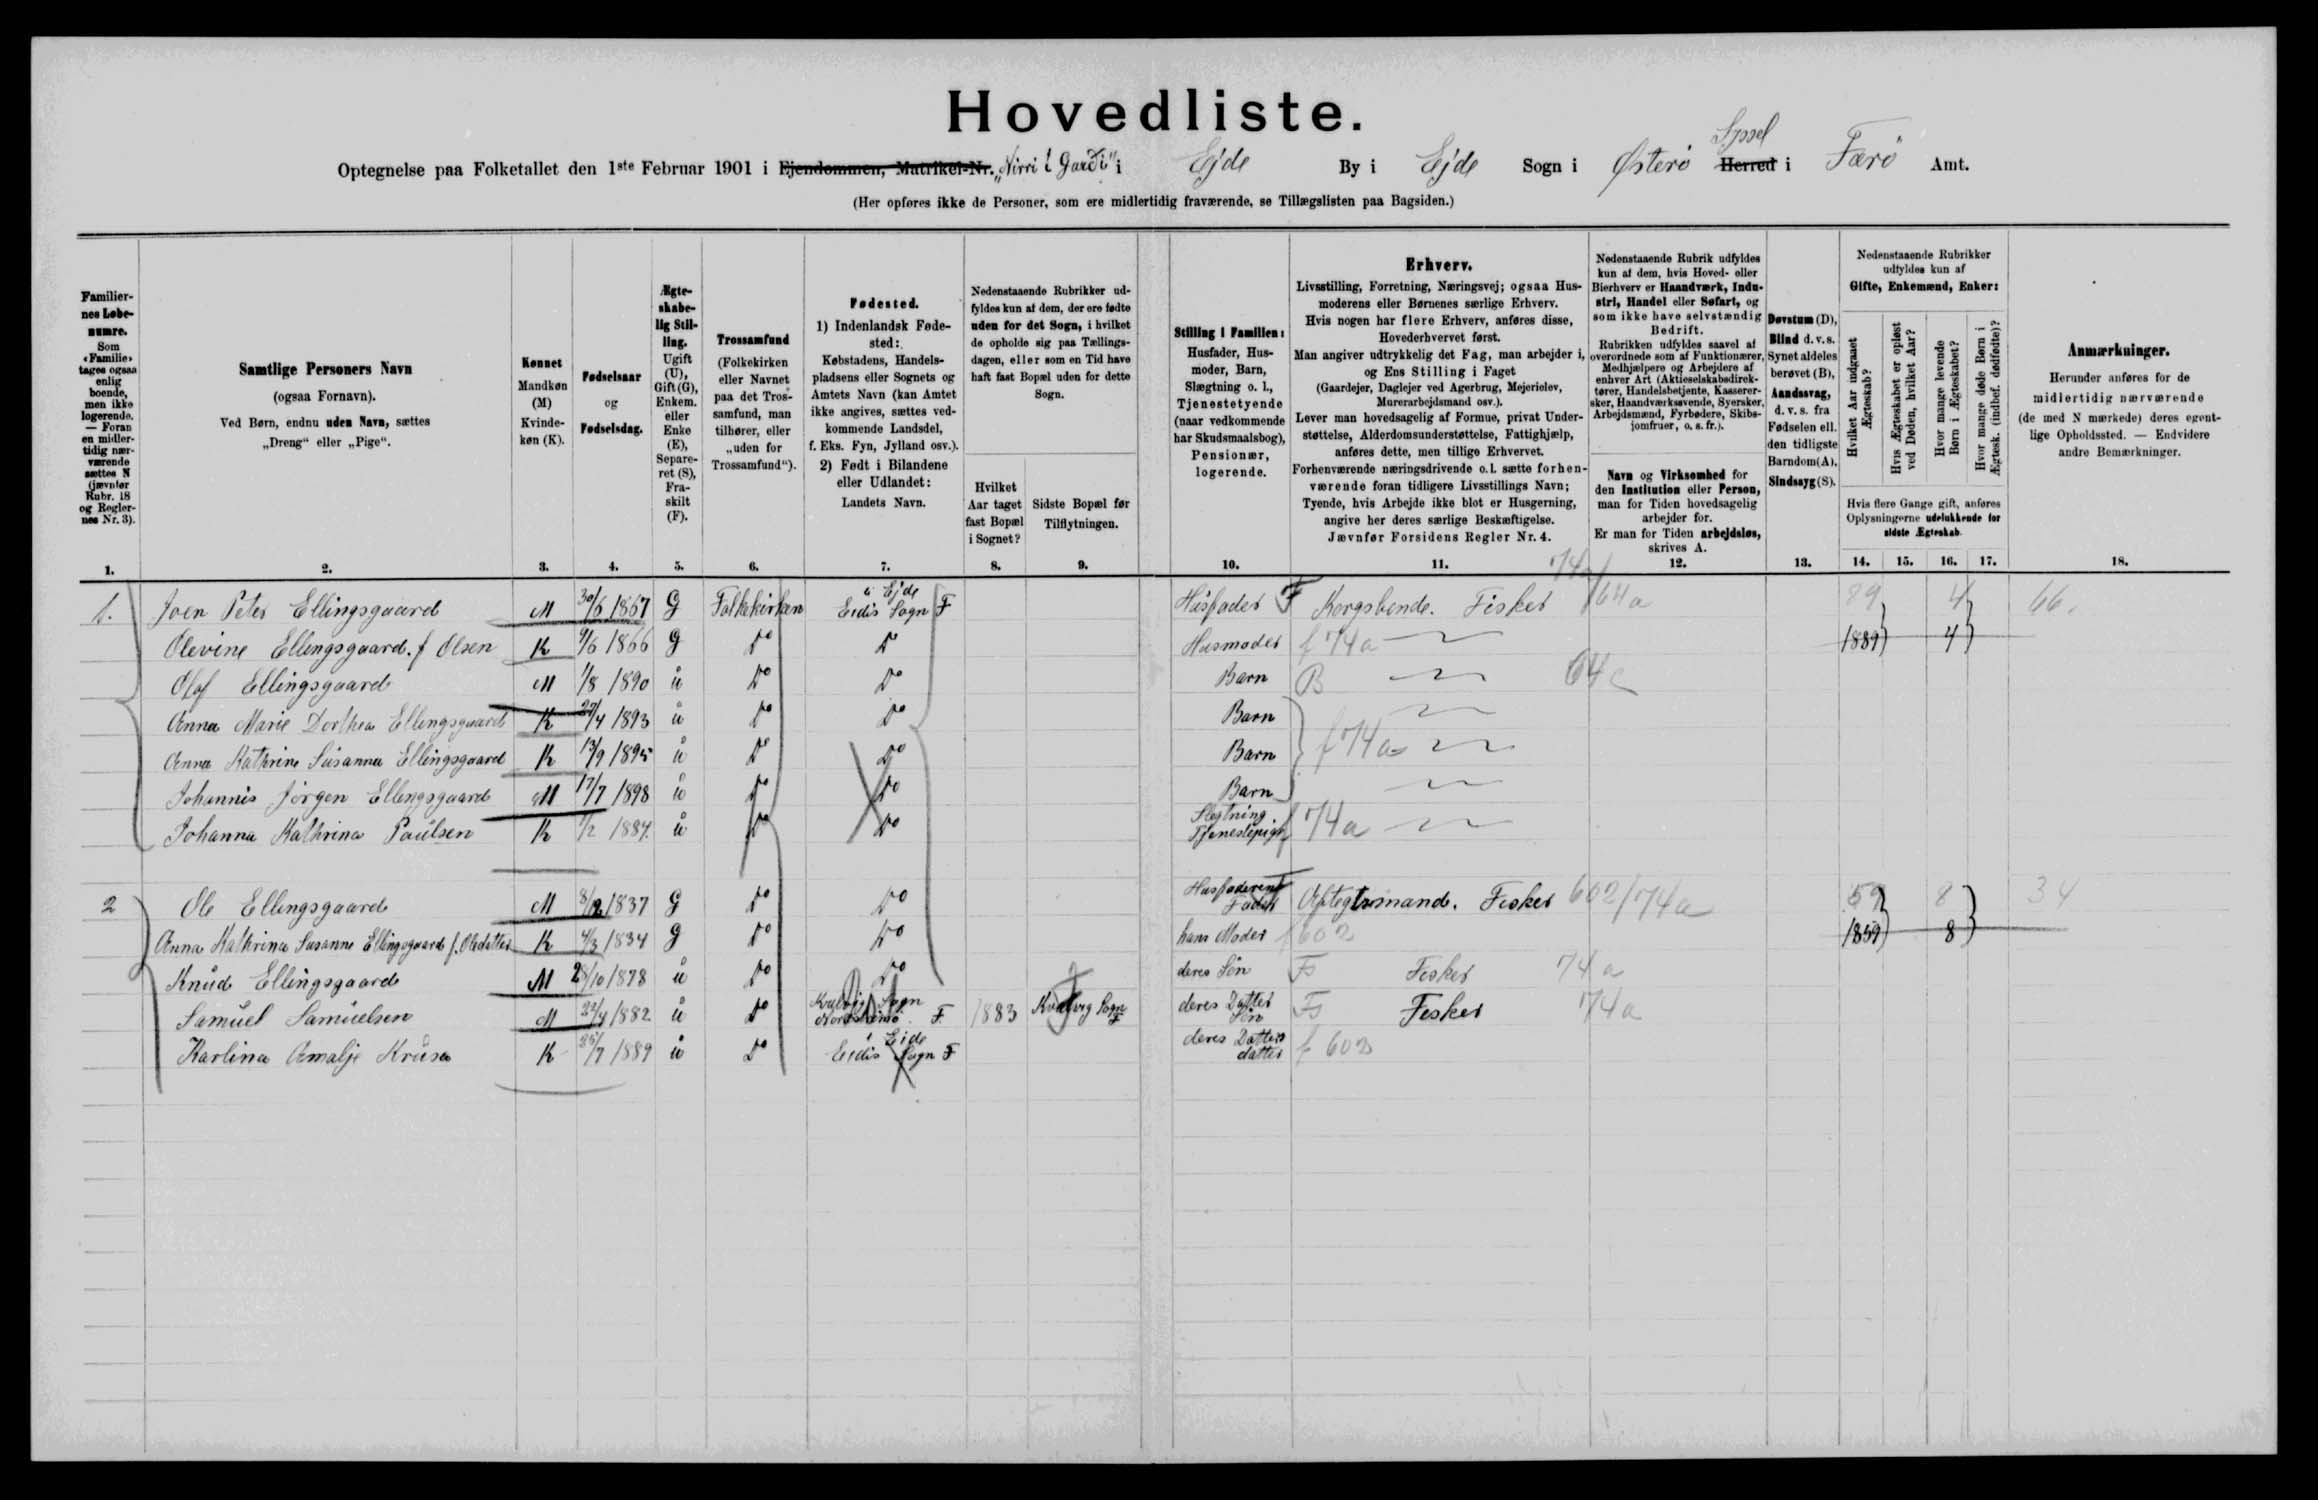 Hovedliste.
Optegnelse paa Folketallet den 1ste Februar 1901 i Ejendommen, Matrikel-Nr. „Nirri i Garði" i Ejde By i Ejde Sogn i Østerö Herred Syssel i Færö Amt.
(Her opføres ikke de Personer, som ere midlertidig fraværende, se Tillægslisten paa Bagsiden.)
Familiernes Løbenumre.
Som «Familie» tages ogsaa enlig boende, men ikke logerende. — Foran en midlertidig nærværende sættes N (jævnfør Rubr. 18 og Reglernes Nr. 3).
Samtlige Personers Navn
(ogsaa Fornavn).
Ved Børn, endnu uden Navn, sættes
„Dreng" eller „Pige".
Kønnet
Mandkøn (M)
Kvindekøn (K).
Fødselsaar
og
Fødselsdag.
Ægteskabelig Stilling.
Ugift (U), Gift (G), Enkem. eller Enke (E), Separeret (S), Fraskilt (F).
Trossamfund
(Folkekirken eller Navnet paa det Trossamfund, man tilhører, eller „uden for Trossamfund").
Fødested.
1) Indenlandsk Fødested:
Købstadens, Handelspladsens eller Sognets og Amtets Navn (kan Amtet ikke angives, sættes vedkommende Landsdel, f. Eks. Fyn, Jylland osv.).
2) Født i Bilandene eller Udlandet:
Landets Navn.
Nedenstaaende Rubrikker udfyldes kun af dem, der ere fødte uden for det Sogn, i hvilket de opholde sig paa Tællingsdagen, eller som en Tid have haft fast Bopæl uden for dette Sogn.
Hvilket Aar taget fast Bopæl i Sognet?
Sidste Bopæl før Tilflytningen.
Stilling i Familien:
Husfader, Husmoder, Barn, Slægtning o. l., Tjenestetyende (naar vedkommende har Skudsmaalsbog), Pensionær, logerende.
Erhverv.
Livsstilling, Forretning, Næringsvej; ogsaa Husmoderens eller Børnenes særlige Erhverv.
Hvis nogen har flere Erhverv, anføres disse, Hovederhvervet først.
Man angiver udtrykkelig det Fag, man arbejder i, og Ens Stilling i Faget
(Gaardejer, Daglejer ved Agerbrug, Mejerielev, Murerarbejdsmand osv.).
Lever man hovedsagelig af Formue, privat Understøttelse, Alderdomsunderstøttelse, Fattighjælp, anføres dette, men tillige Erhvervet.
Forhenværende næringsdrivende o. l. sætte forhenværende foran tidligere Livsstillings Navn;
Tyende, hvis Arbejde ikke blot er Husgerning, angive her deres særlige Beskæftigelse.
Jævnfør Forsidens Regler Nr. 4.
Nedenstaaende Rubrik udfyldes kun af dem, hvis Hoved- eller Bierhverv er Haandværk, Industri, Handel eller Søfart, og som ikke have selvstændig Bedrift.
Rubrikken udfyldes saavel af overordnede som af Funktionærer, Medhjælpere og Arbejdere af enhver Art (Aktieselskabsdirektører, Handelsbetjente, Kasserersker, Haandværkssvende, Syersker, Arbejdsmænd, Fyrbødere, Skibsjomfruer, o. s. fr.).
Navn og Virksomhed for den Institution eller Person, man for Tiden hovedsagelig arbejder for.
Er man for Tiden arbejdsløs, skrives A.
Døvstum (D), Blind d. v. s. Synet aldeles berøvet (B), Aandssvag, d. v. s. fra Fødselen ell. den tidligste Barndom (A), Sindssyg (S).
Nedenstaaende Rubrikker udfyldes kun af
Gifte, Enkemænd, Enker:
Hvilket Aar indgaaet Ægteskab?
Hvis Ægteskabet er opløst ved Døden, hvilket Aar?
Hvor mange levende Børn i Ægteskabet?
Hvor mange døde Børn i Ægtesk. (indbef. dødfødte)?
Hvis flere Gange gift, anføres Oplysningerne udelukkende for sidste Ægteskab.
Anmærkninger.
Herunder anføres for de midlertidig nærværende (de med N mærkede) deres egentlige Opholdssted. — Endvidere andre Bemærkninger.
1. 2. 3. 4. 5. 6. 7. 8. 9. 10. 11. 12. 13. 14. 15. 16. 17. 18.
1. Joen Peter Ellingsgaard M 30/6 1867 G Folkekirken Ejde Eidis Sogn F Husfader F Kongsbonde. Fisker 74a/64a 89 4 66.
Olevine Ellingsgaard. f Olsen K 9/6 1866 G Do Do Husmoder f 74a 1889 4
Olaf Ellingsgaard M 1/8 1890 u Do Do Barn B 64c
Anna Marie Dorthea Ellingsgaard K 27/4 1893 u Do Do Barn
Anna Kathrine Susanna Ellingsgaard K 13/9 1895 u Do Do Barn f 74a
Johannis Jörgen Ellingsgaard M 17/7 1898 u Do Do Barn
Johanna Kathrina Paulsen K 1/2 1884. u Do Do Slegtning. Tjenestepige f 74a
2 Ole Ellingsgaard M 8/12 1837 G Do Do Husfaderens Fader Aftegtsmand. Fisker 602/74a 59 8 34
Anna Kathrina Susanne Ellingsgaard f. Olsdatter K 4/3 1834 G Do Do hans Moder f 602 1859 8
Knud Ellingsgaard M 28/10 1878 u Do Do deres Sön F Fisker 74a
Samuel Samuelsen M 22/4 1882 u Do Kvalvig Sogn F. 1883 Kvalvig Sogn F deres Datter Sön F Fisker 74a
Karlina Amalje Kruse K 25/7 1889 u Do Eide Eidis Sogn F deres Datters datter f 602